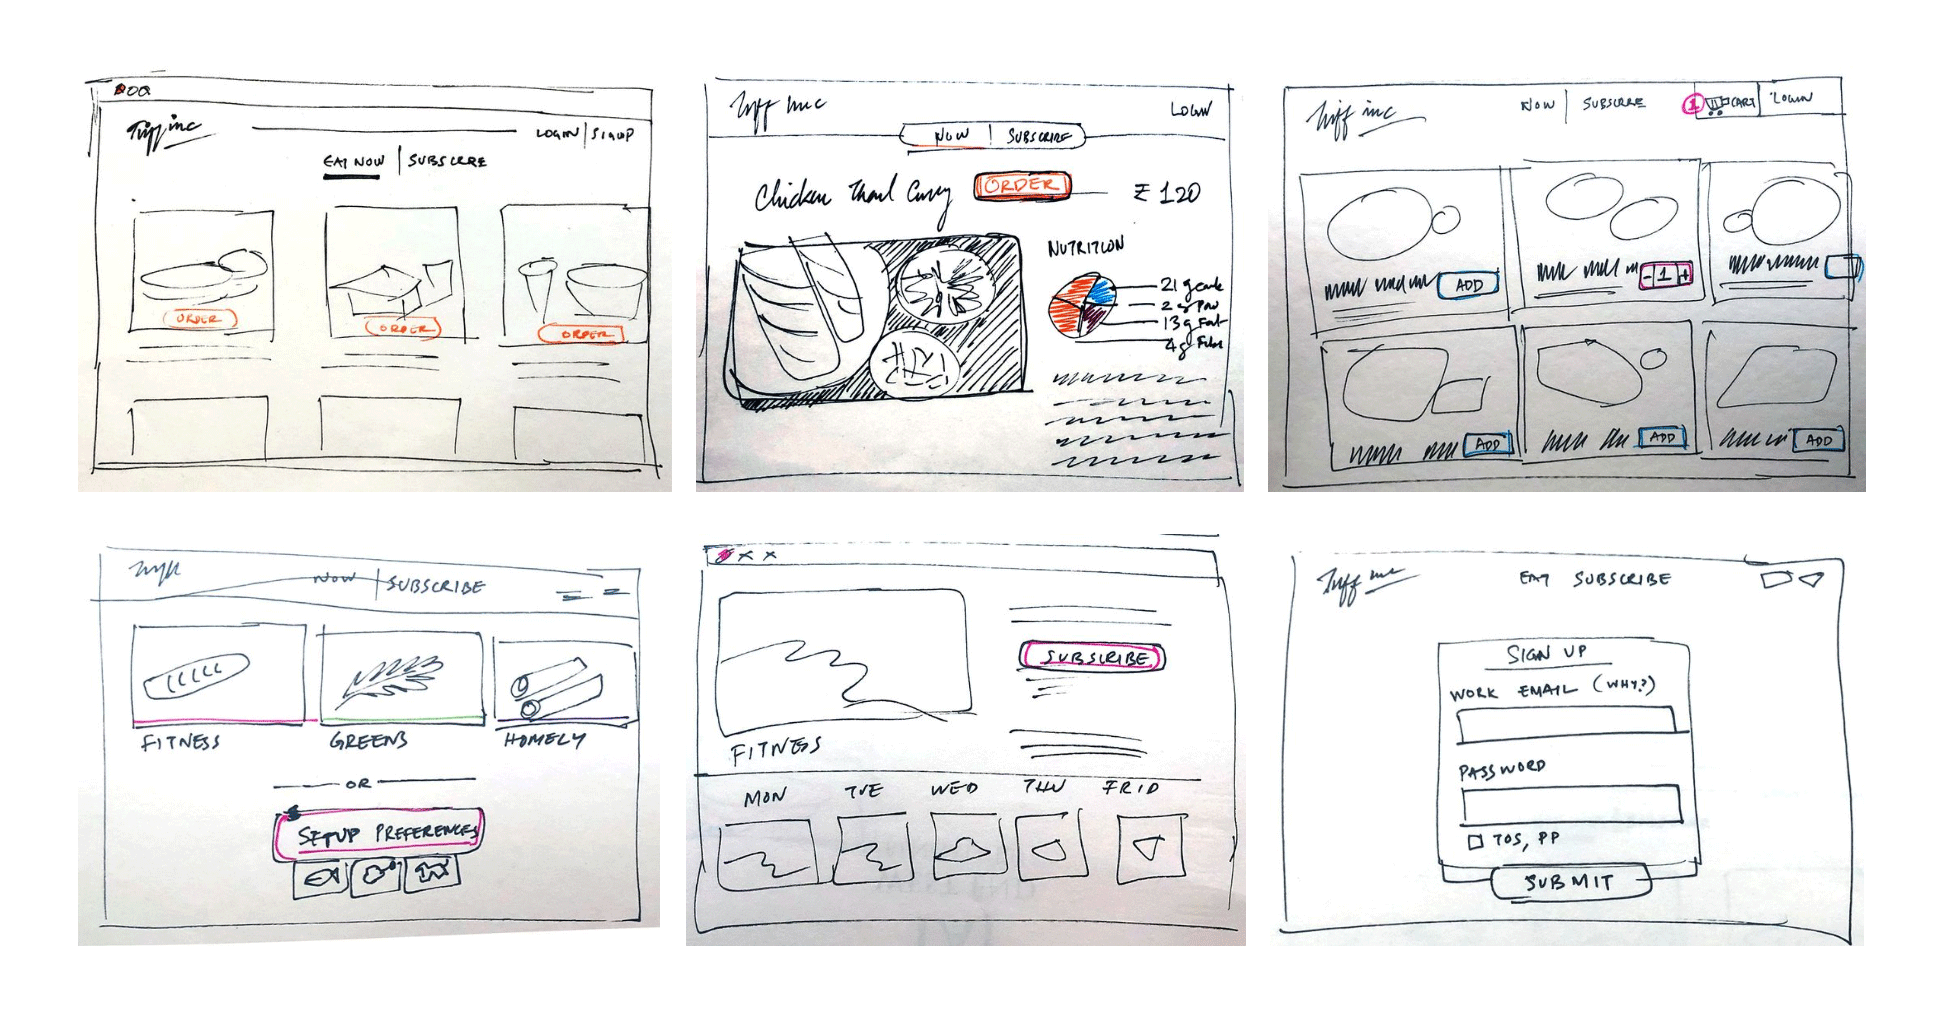 Tiff inc
LOGIN | SIGNUP
EAT NOW | SUBSCRIBE
ORDER
ORDER
ORDER
Tiff inc
LOGIN
NOW | SUBSCRIBE
Chicken Thali Curry
ORDER
₹ 120
NUTRITION
21 g carb
2 g pro
13 g Fat
4 g Fiber
Tiff inc
NOW | SUBSCRIBE
1
CART
LOGIN
ADD
- 1 +
ADD
ADD
ADD
NOW | SUBSCRIBE
FITNESS
GREENS
HOMELY
OR
SETUP PREFERENCES
SUBSCRIBE
FITNESS
MON TUE WED THU FRID
Tiff inc
EAT SUBSCRIBE
SIGN UP
WORK EMAIL (WHY?)
PASSWORD
TOS, PP
SUBMIT